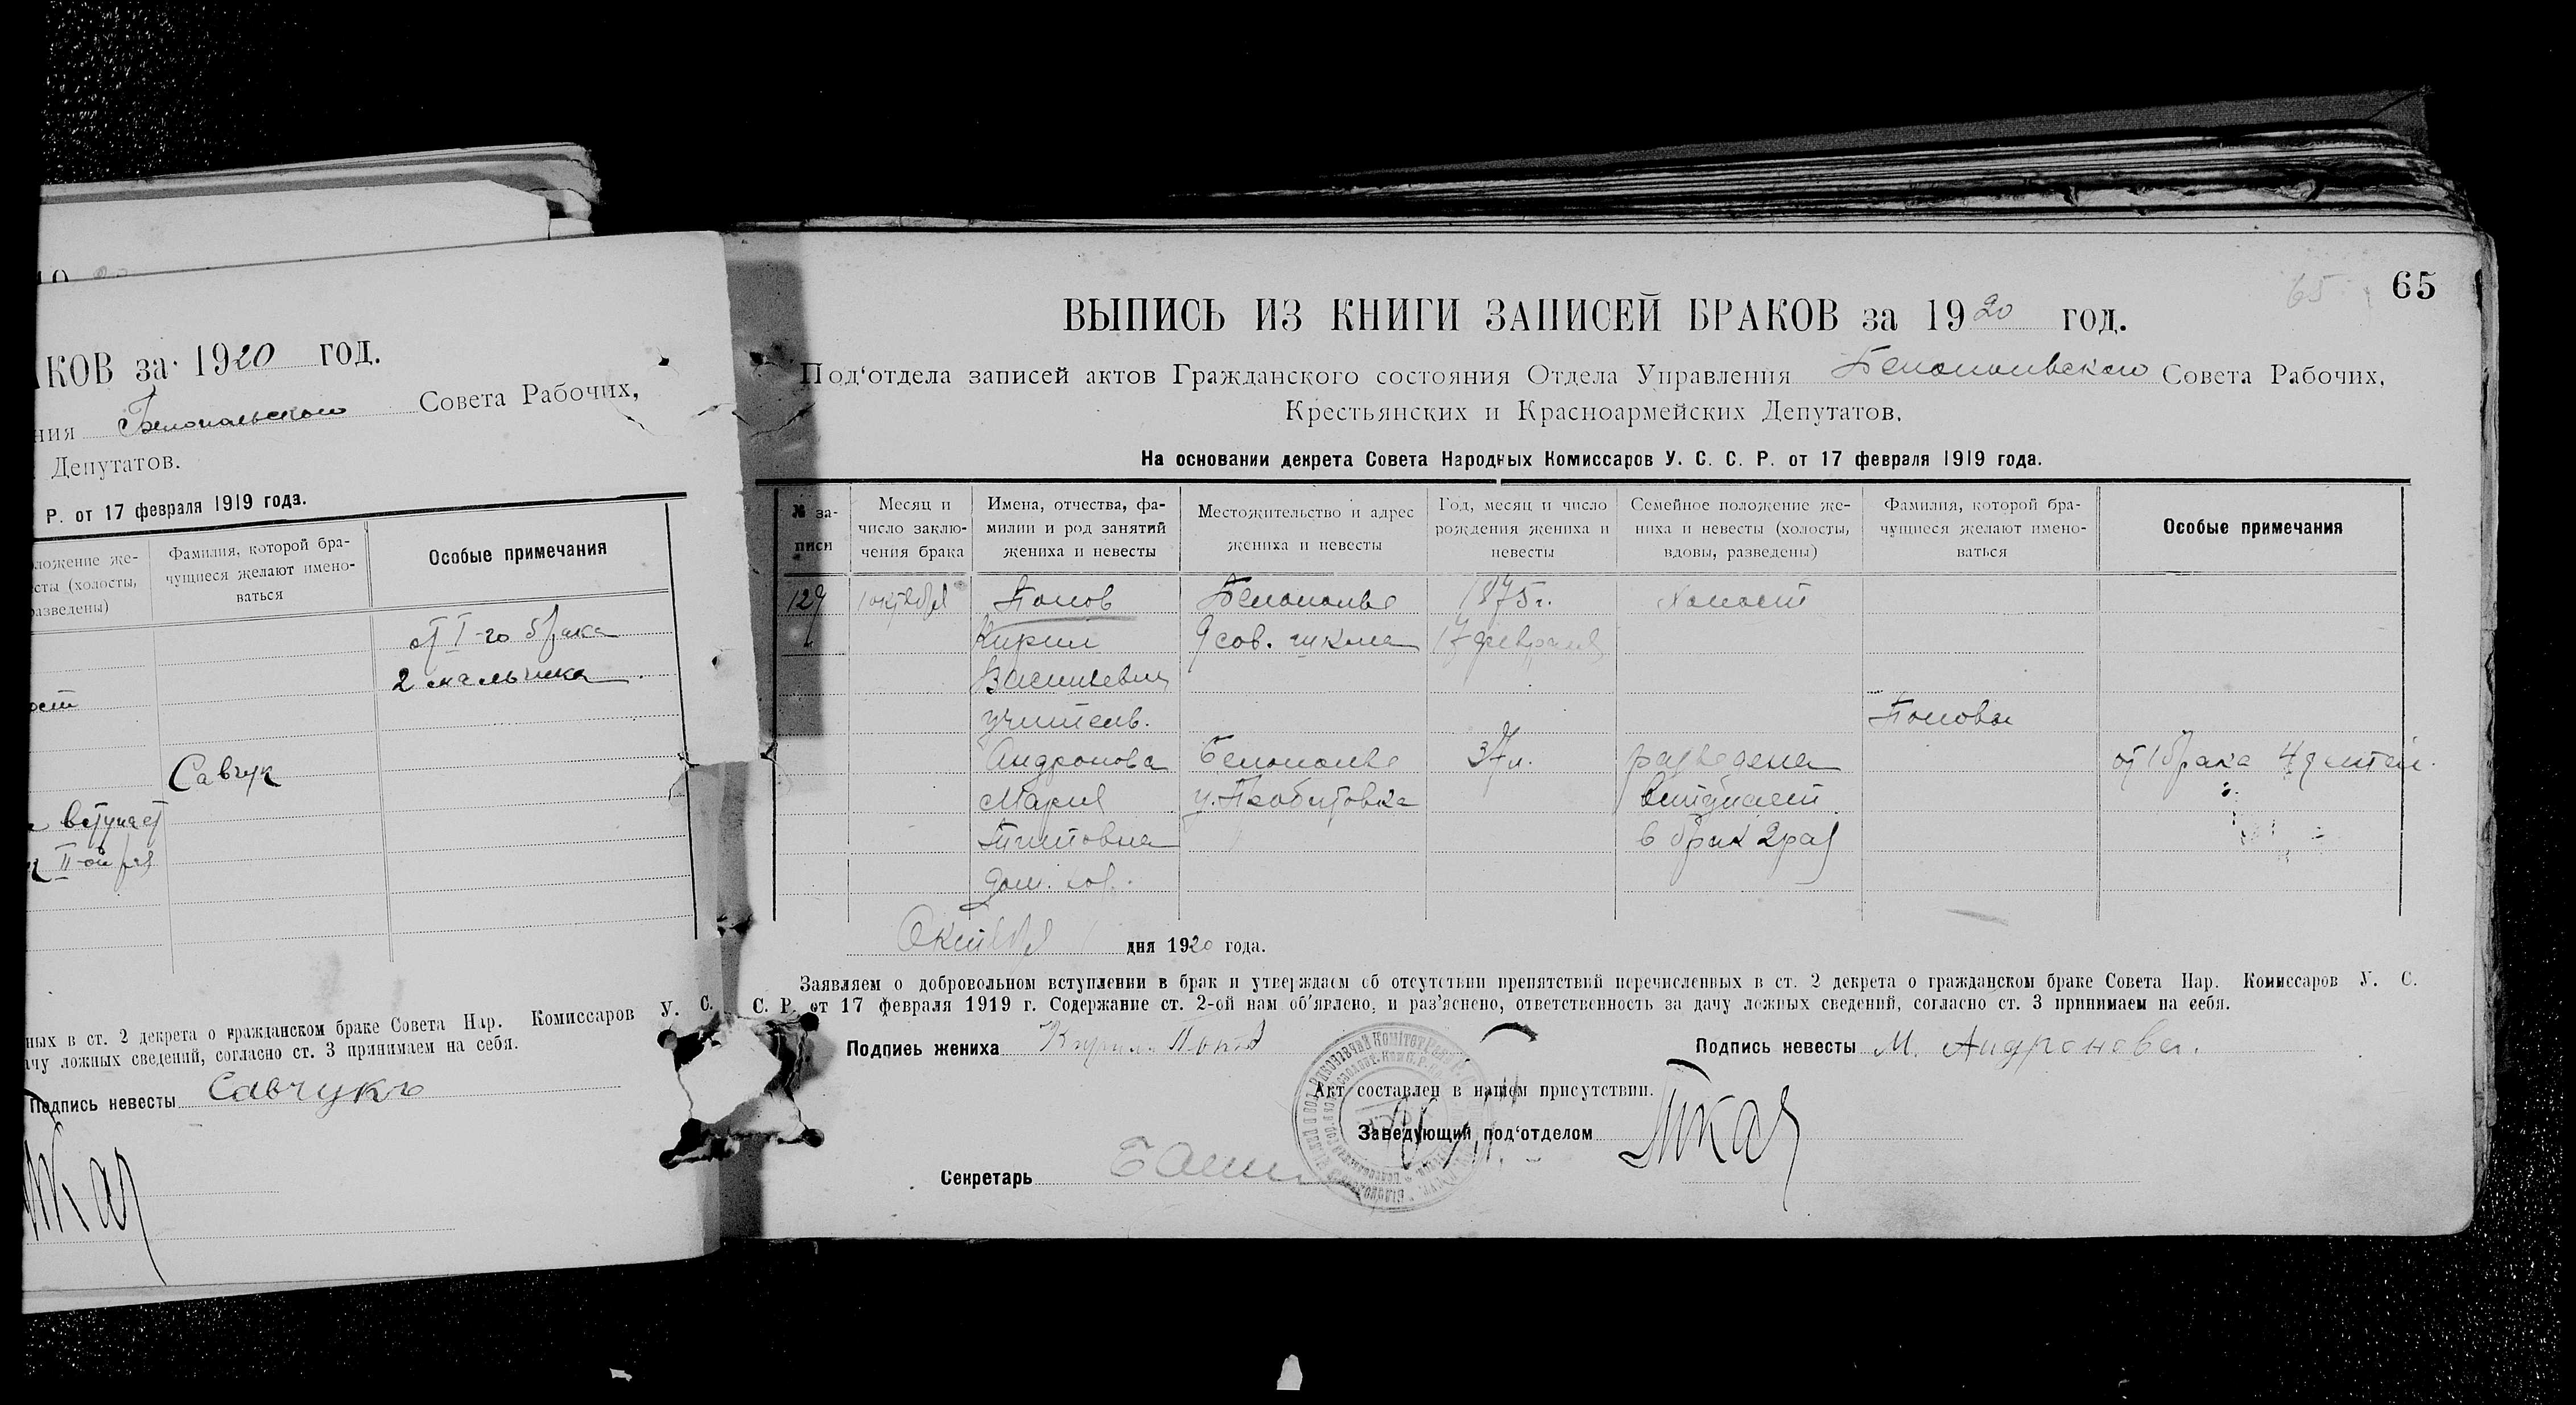 КОВ за 1920 год.
ния Белопольского Совета Рабочих,
Депутатов.
Р. от 17 февраля 1919 года.
сты (холосты,
разведены)
Фамилия, которой бра-
чущиеся желают имено-
ваться
Особые примечания
от I-го брака
2 мальчика
Савчук
вступает
II-ой раз
ных в ст. 2 декрета о гражданском браке Совета Нар. Комиссаров У. С.
ачу ложных сведений, согласно ст. 3 принимаем на себя.
Подпись невесты Савчукъ
Ткач
65
65
ВЫПИСЬ ИЗ КНИГИ ЗАПИСЕЙ БРАКОВ за 1920 год.
Под‘отдела записей актов Гражданского состояния Отдела Управления Белопольского Совета Рабочих,
Крестьянских и Красноармейских Депутатов.
На основании декрета Совета Народных Комиссаров У. С. С. Р. от 17 февраля 1919 года.
№ за-
писи
Месяц и
число заклю-
чения брака
Имена, отчества, фа-
милии и род занятий
жениха и невесты
Местожительство и адрес
жениха и невесты
Год, месяц и число
рождения жениха и
невесты
Семейное положение же-
ниха и невесты (холосты,
вдовы, разведены)
Фамилия, которой бра-
чущиеся желают имено-
ваться
Особые примечания
129 1 октября Попов Белополье 1875 г. холост
Кирил 9 сов. школа 17 февраля
Васильевич
учитель. Поповы
Андронова Белополье 37 л. разведена от 1 брака 4 детей.
Мария вступает
Титовна в брак 2 раз
дом. хоз.
Октября 1 дня 1920 года.
Заявляем о добровольном вступлении в брак и утверждаем об отсутствии препятствий перечисленных в ст. 2 декрета о гражданском браке Совета Нар. Комиссаров У. С.
С. Р. от 17 февраля 1919 г. Содержание ст. 2-ой нам об’явлено, и раз’яснено, ответственность за дачу ложных сведений, согласно ст. 3 принимаем на себя.
Подпись жениха Кирилл Попов
Подпись невесты М. Андронова.
Акт составлен в нашем присутствии.
Заведующий под‘отделом Ткач
Секретарь